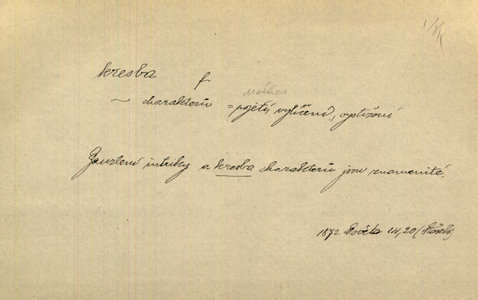 kresba f
~ charakterů = pojetí, vylíčení, vystižení
Zauzlení intriky a kresba charakterů jsou znamenité,
1872 Světa 14, 20